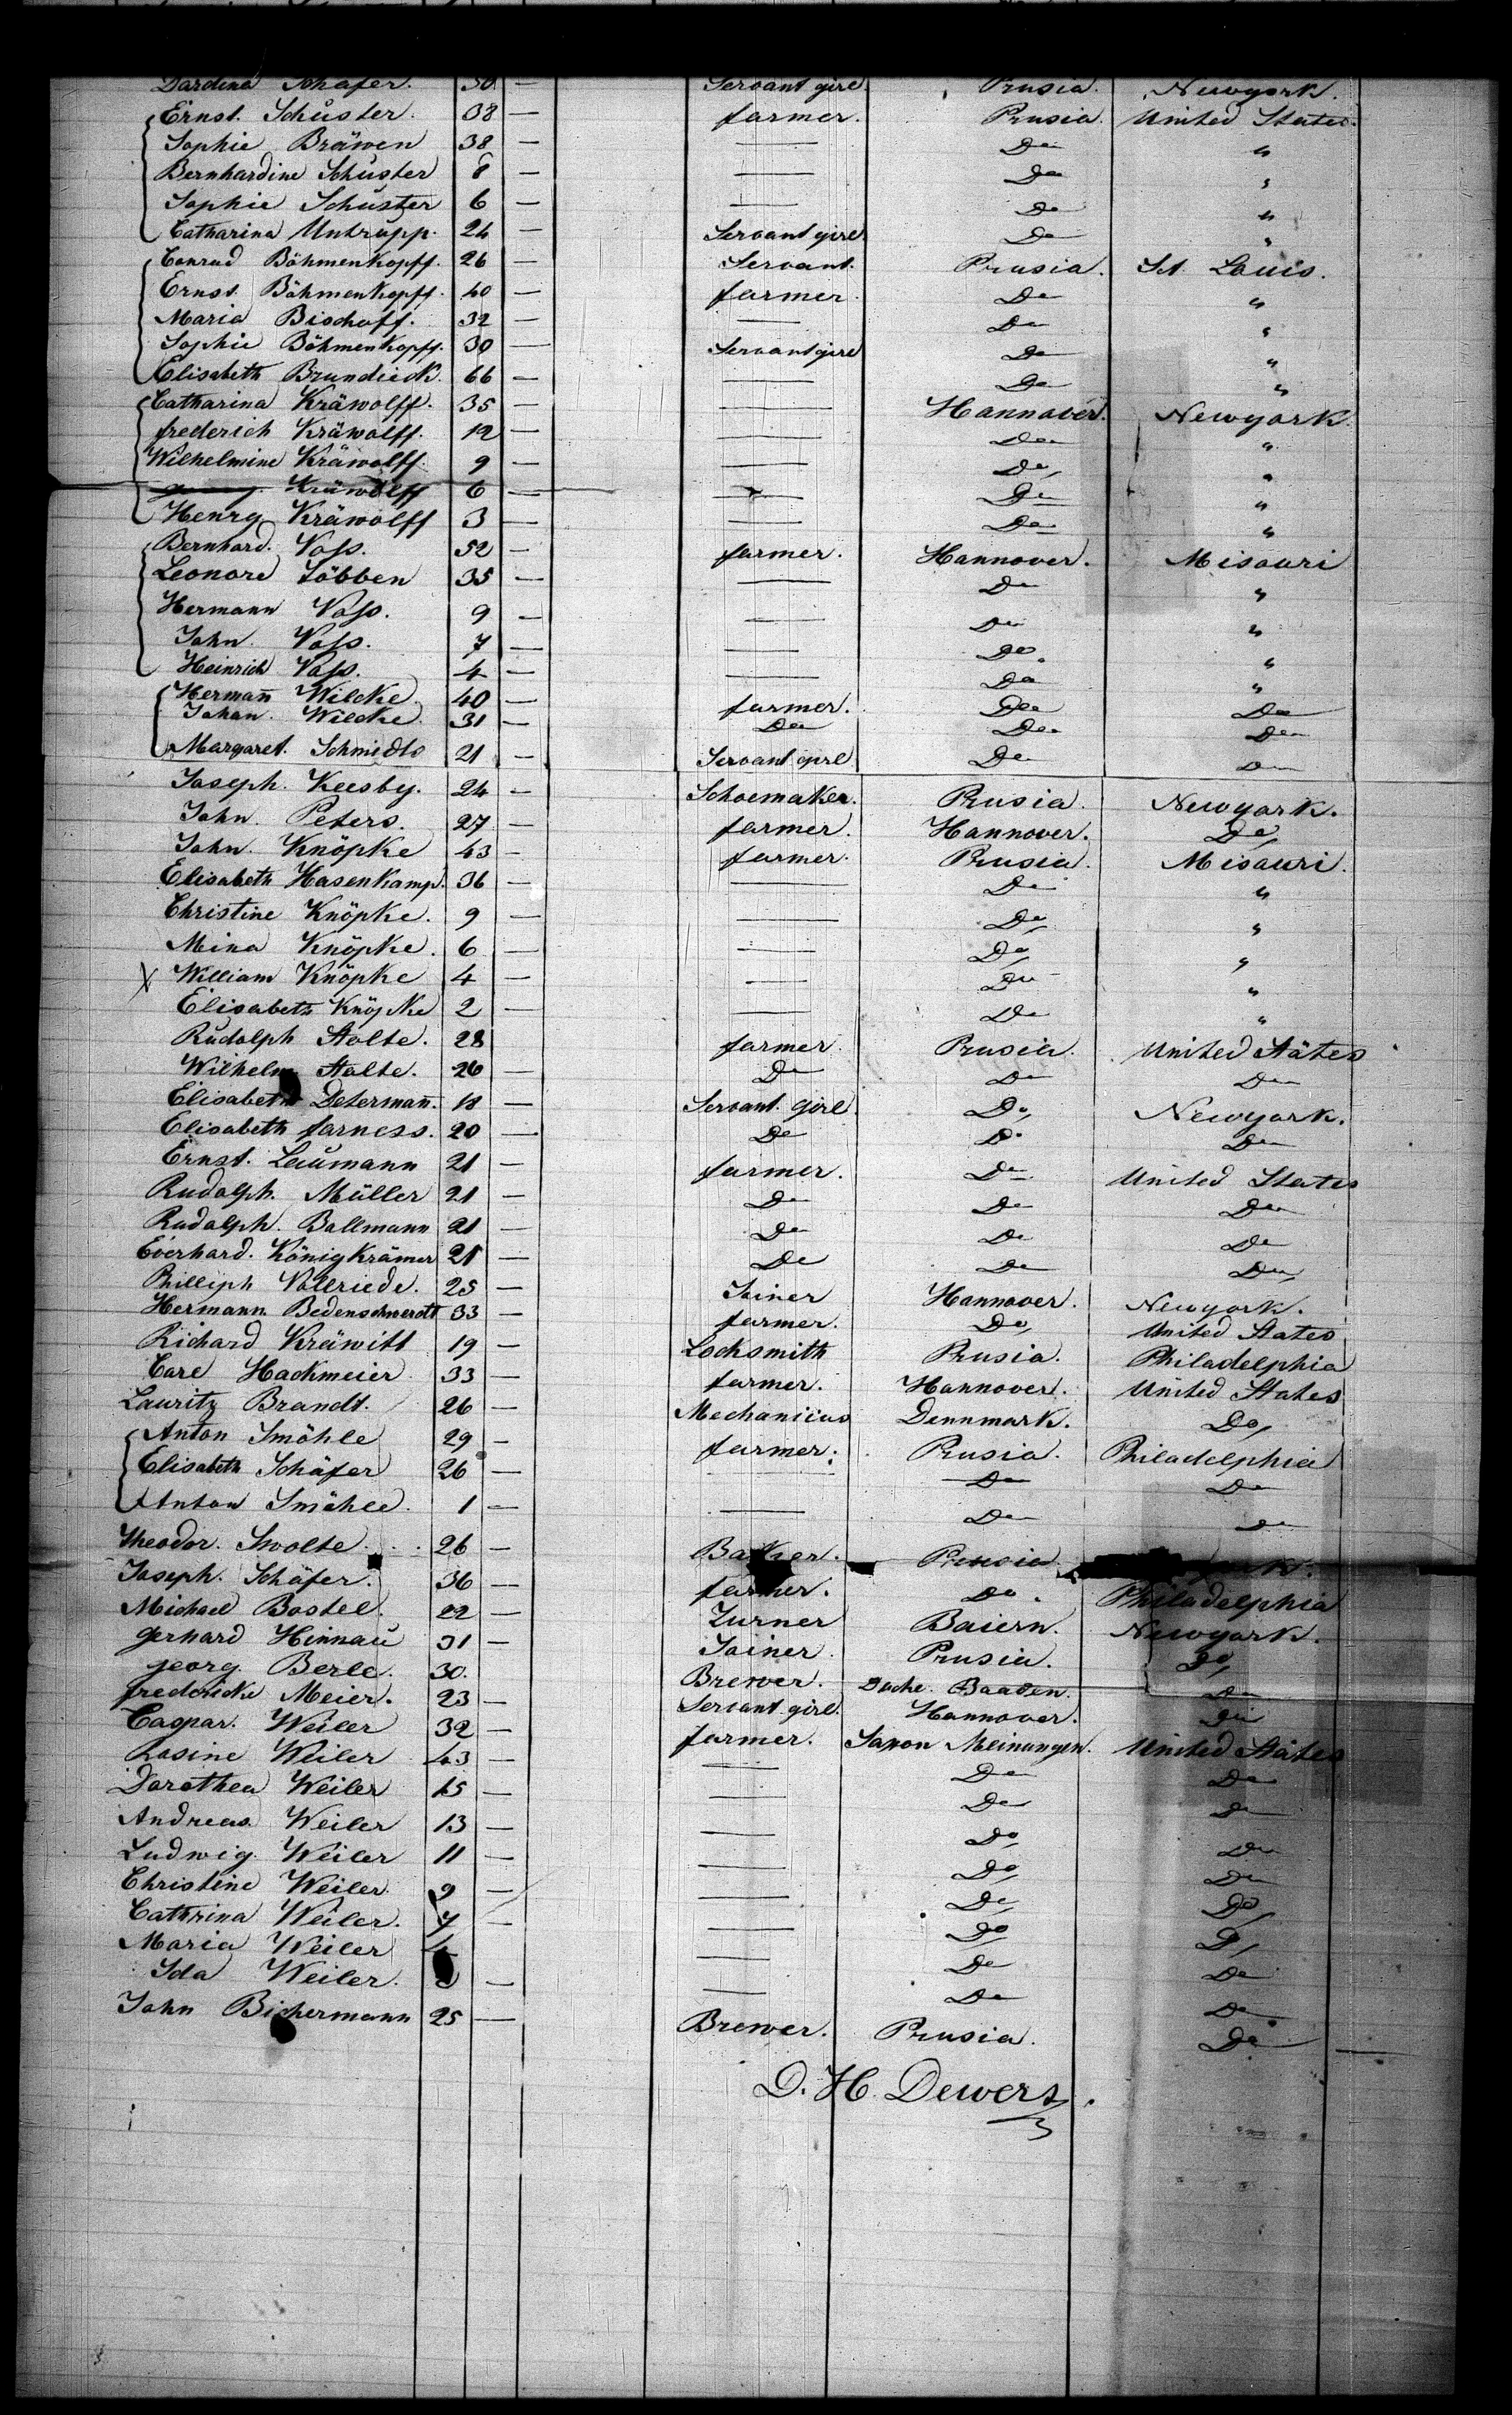 Dardina Schäfer. 30 — Servant girl. Prusia. Newyork.
Ernst. Schüster. 38 — farmer. Prusia. United States.
Sophie Bräwen 38 — — Do "
Bernhardine Schüster 8 — — Do "
Sophie Schüster 6 — — Do "
Catharina Untrüpp. 24 — Servant girl Do "
Conrad Böhmenkopff. 26 — Servant. Prusia. St. Louis.
Ernst. Böhmenkopff. 40 — farmer. Do "
Maria Bischoff. 32 — — Do "
Sophie Böhmenkopff. 30 — Servant girl Do "
Elisabeth Brundieck. 66 — — Do "
Catharina Kräwolff. 35 — — Hannover. Newyork.
frederich Kräwolff. 12 — — Do "
Wilhelmine Kräwolff. 9 — — Do "
Kräwolff 6 — — Do "
Henry Kräwolff 3 — — Do "
Bernhard. Voss. 52 — farmer. Hannover. Misouri
Leonore Löbben 35 — — Do "
Hermann Voss. 9 — — Do "
John. Voss. 7 — — Do. "
Heinrich Voss. 4 — — Do "
Hermañ Wilcke. 40 — farmer. Do Do
Johan. Wilcke. 31 — Do Do Do
Margaret. Schmidts 21 — Servant girl Do Do
Joseph. Keesby. 24 — Schoemaker. Prusia. Newyork.
John. Peters. 27 — farmer. Hannover. Do
John. Knöpke 43 — farmer. Prusia. Misouri.
Elisabeth Hasenkamp. 36 — — Do "
Christine Knöpke. 9 — — Do "
Mina Knöpke. 6 — — Do "
X William Knöpke 4 — — Do "
Elisabeth Knöpke 2 — — Do "
Rüdolph Stolte. 28 farmer. Prusia. United States
Wilhelm Stolte. 26 — Do Do Do
Elisabeth Determañ. 18 — Servant girl. Do Newyork.
Elisabeth farness. 20 — Do Do Do
Ernst. Laümann 21 — farmer. Do United States
Rudolph. Müller 21 — Do Do Do
Rudolph. Ballmann 21 — Do Do Do
Everhard. Königkrämer 21 — Do Do Do
Philliph Vollriede. 25 — Joiner Hannover. Newyork.
Hermann. Bedenschwerdt 33 — farmer. Do United States
Richard Kräwitt 19 — Locksmith Prusia. Philadelphia
Carl Hackmeier 33 — farmer. Hannover. United States
Lauritz Brandt. 26 — Mechanicus Dennmark. Do
Anton Smöhle 29 — farmer. Prusia. Philadelphia
Elisabeth Schäfer 26 — — Do Do
Anton Smöhle. 1 — — Do Do
Theodor. Swolte. 26 — Baker. Prusia
Joseph. Schäfer. 36 — farmer. Do. Philadelphia
Michael Bostel. 22 — Turner Baiern. Newyork.
gerhard Hinnaü 31 — Joiner. Prusia. Do
georg. Berle. 30. Brewer. Baaden. Do
fredericke Meier. 23 — Servant girl. Hannover. Do
Caspar. Weiler 32 — farmer. Saxon Meinungen. United States
Rosine Weiler 43 — — Do Do
Dorothea Weiler 15 — — Do Do
Andreas. Weiler 13 — — Do Do
Ludwig. Weiler 11 — — Do Do
Christine Weiler. 9 — — Do Do
Cathrina Weiler. 7 — — Do Do
Maria Weiler — Do Do
Ida Weiler. — — Do Do
John Bichermann 25 — Brewer. Prusia. Do
D. H. Dewers.